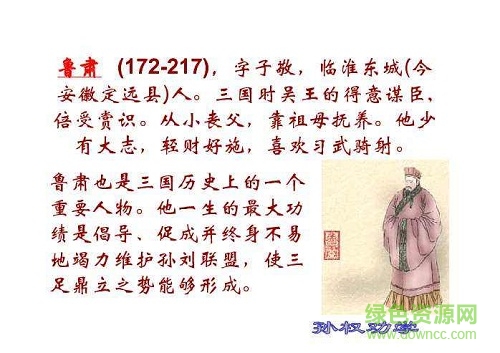 鲁肃 (172-217)，字子敬，临淮东城(今
安徽定远县)人。三国时吴王的得意谋臣，
倍受赏识。从小丧父，靠祖母抚养。他少
有大志，轻财好施，喜欢习武骑射。
鲁肃也是三国历史上的一个
重要人物。他一生的最大功
绩是倡导、促成并终身不易
地竭力维护孙刘联盟，使三
足鼎立之势能够形成。
孙权劝学
绿色资源网
www.downcc.com